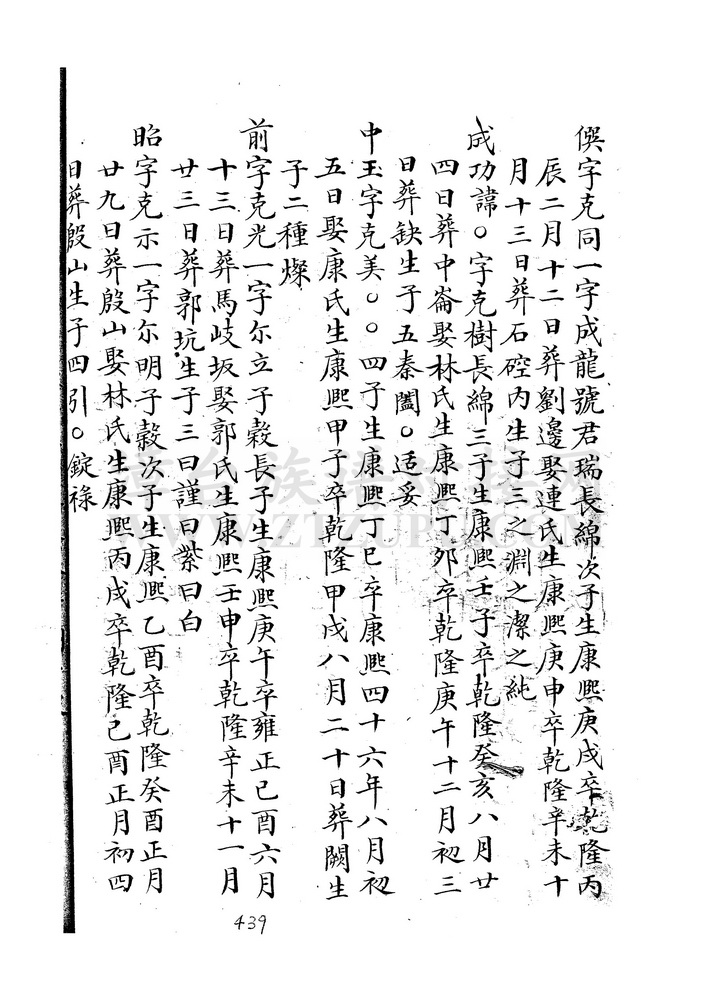 俁字克同一字成龍號君瑞長綿次子生康熙庚戌卒乾隆丙
辰二月十二日葬劉邊娶連氏生康熙庚申卒乾隆辛未十
月十三日葬石硿內生子三之淵之潔之純
成功諱〇字克樹長綿三子生康熙壬子卒乾隆癸亥八月廿
四日葬中崙娶林氏生康熙丁夘卒乾隆庚午十二月初三
日葬缺生子五秦闔〇适妥
中玉字克美〇〇四子生康熙丁巳卒康熙四十六年八月初
五日娶康氏生康熙甲子卒乾隆甲戌八月二十日葬闕生
子二種燦
前字克光一字尔立子榖長子生康熙庚午卒雍正己酉六月
十三日葬馬岐坂娶郭氏生康熙壬申卒乾隆辛未十一月
廿三日葬郭坑生子三曰謹曰紫曰白
昭字克示一字尔明子榖次子生康熙乙酉卒乾隆癸酉正月
廿九日葬殷山娶林氏生康熙丙戌卒乾隆己酉正月初四
日葬殷山生子四引〇錠祿
439
WWW.ZTZUPU.COM